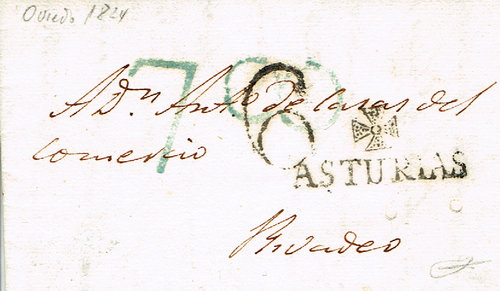 Oviedo 1824
7 8 6
A Dn. Anto. de Casas del
Comercio
ASTURIAS
Rivadeo